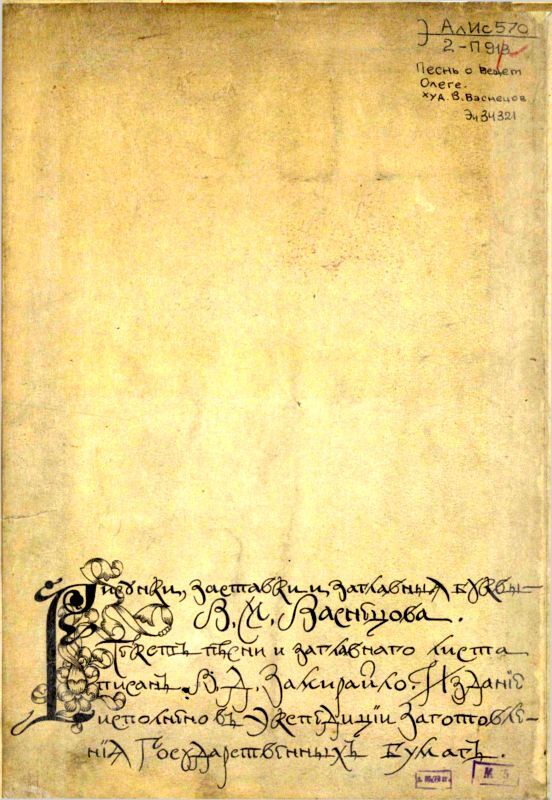 Э АлИс570
2-П913
Песнь о вещем
Олеге.
худ. В. Васнецов
Эи34321
Рисунки, заставки и заглавныѧ буквы
В. М. Васнецова.
Текстъ пѣсни и заглавнаго листа
писанъ В. Д. Замирайло. Изданіе
исполнено въ Экспедиціи Заготовле-
нія Государственныхъ Бумагъ.